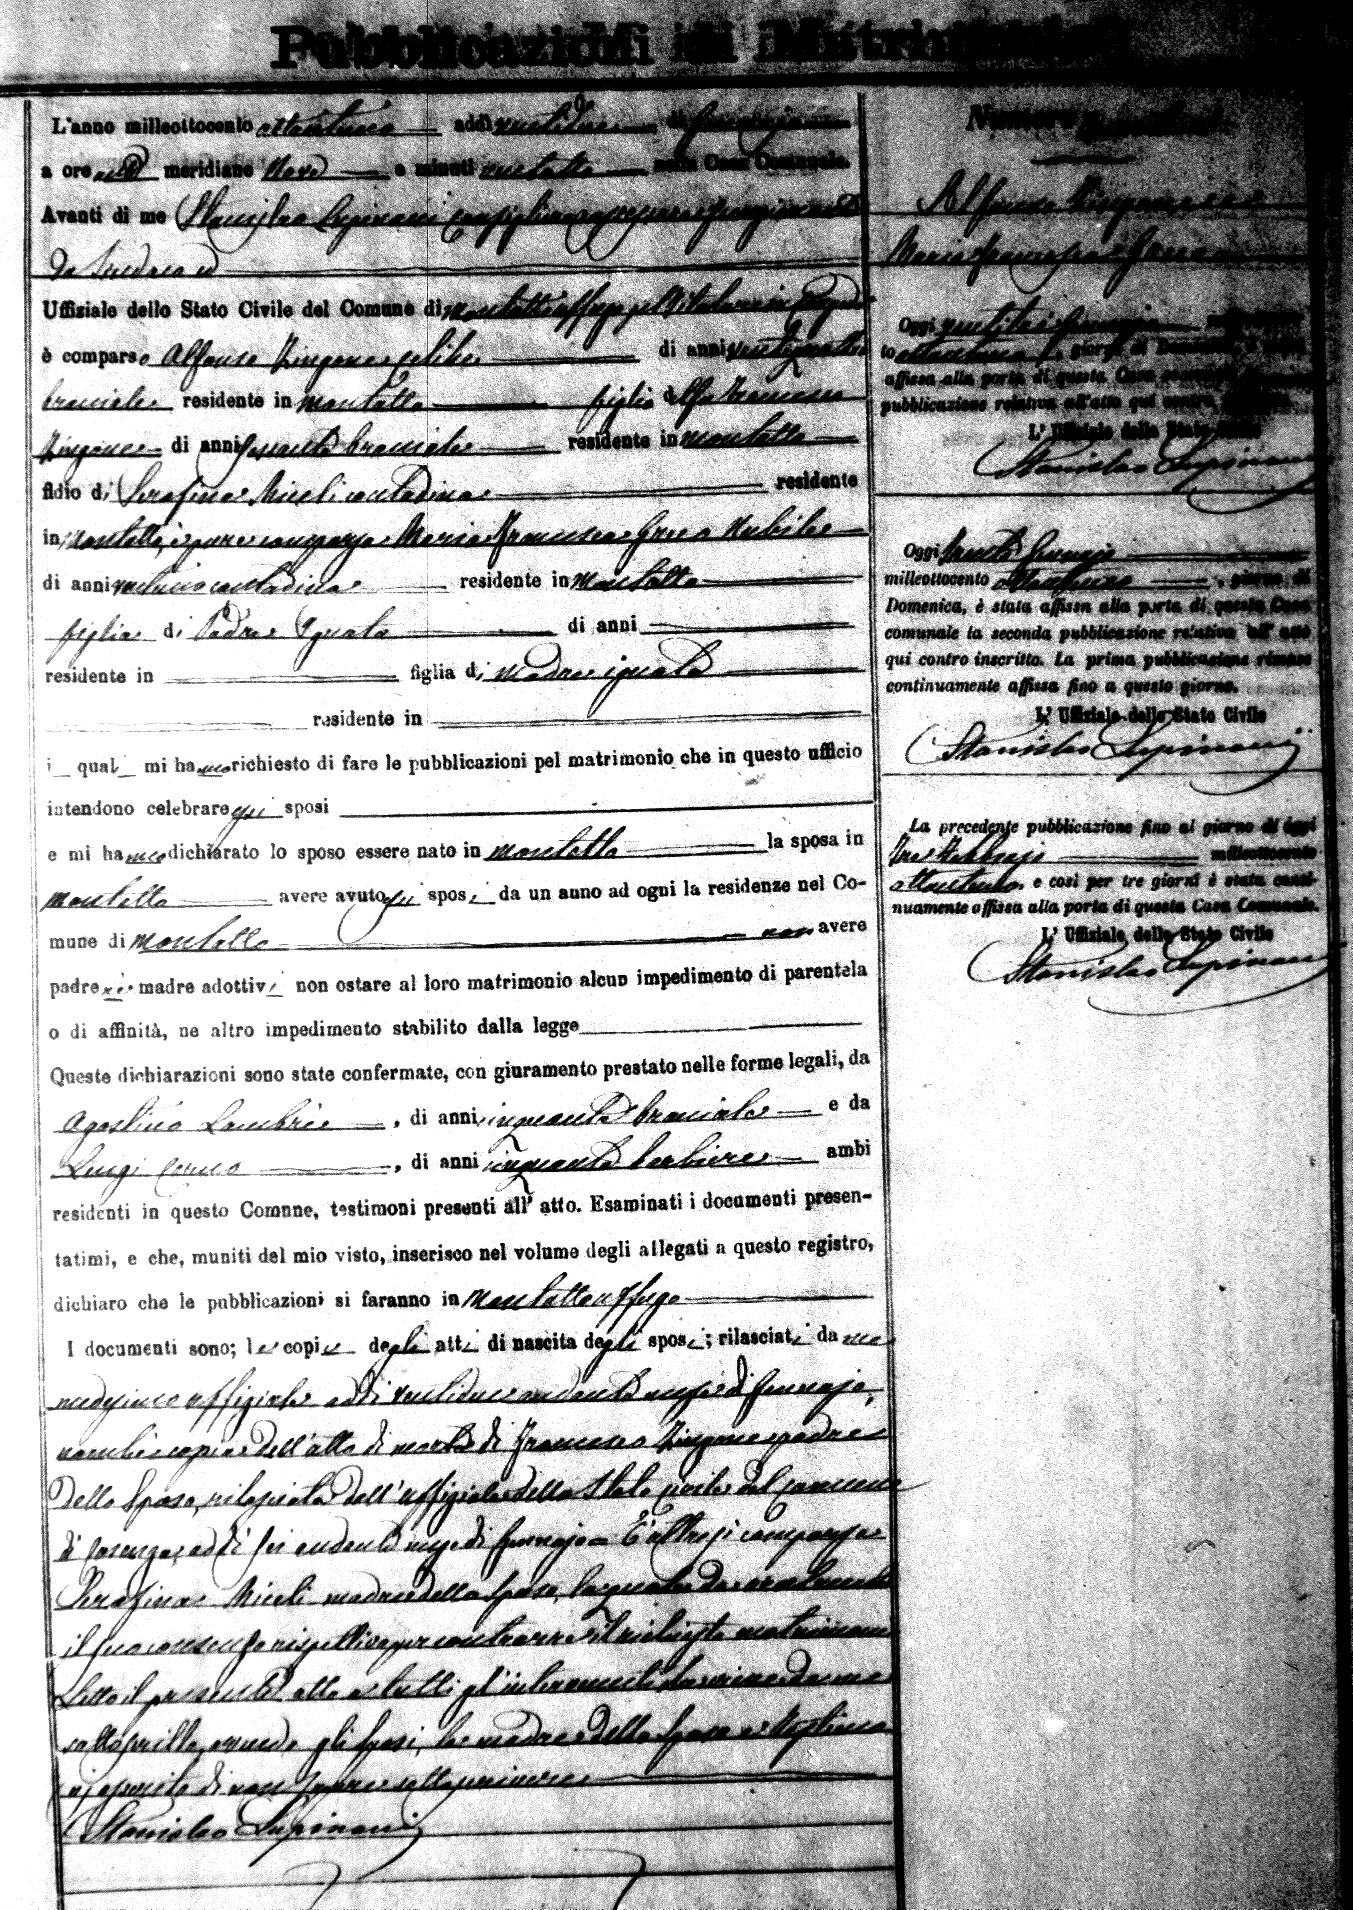 Pubblicazioni di Matrimonio
L'anno milleottocento ottantuno addì ventidue di Gennajo
a ore meridiane Nove e minuti ventotto nella Casa Comunale.
Avanti di me Stanislao Lupinacci Consigliere funzionante
da Sindaco
Uffiziale dello Stato Civile del Comune di Montalto Uffugo
è comparso Alfonso Zingone celibe di anni ventiquattro
bracciale residente in Montalto figlio del fu Francesco
Zingone di anni sessanta bracciale residente in Montalto
e di Serafina Nicoli contadina residente
in Montalto, è pure comparsa Maria Francesca Greco Nubile
di anni contadina residente in Montalto
figlia di Padre Ignoto di anni
residente in figlia di madre ignota
residente in
i quali mi hanno richiesto di fare le pubblicazioni pel matrimonio che in questo ufficio
intendono celebrare gli sposi
e mi hanno dichiarato lo sposo essere nato in Montalto la sposa in
Montalto avere avuto gli sposi da un anno ad ogni la residenze nel Co-
mune di Montalto non avere
padre nè madre adottivi non ostare al loro matrimonio alcun impedimento di parentela
o di affinità, ne altro impedimento stabilito dalla legge
Queste dichiarazioni sono state confermate, con giuramento prestato nelle forme legali, da
Agostino , di anni cinquanta bracciale e da
Luigi , di anni cinquanta barbiere ambi
residenti in questo Comune, testimoni presenti all' atto. Esaminati i documenti presen-
tatimi, e che, muniti del mio visto, inserisco nel volume degli allegati a questo registro,
dichiaro che le pubblicazioni si faranno in Montalto Uffugo
I documenti sono; le copie degli atti di nascita degli sposi; rilasciati da me
medesimo uffiziale addì ventidue andante mese di Gennajo,
copia dell'atto di morte di Francesco Zingone padre
dello Sposo, rilasciata dall'uffiziale dello Stato civile del Comune
di Cosenza, addì sei andante mese di Gennajo = È altresì comparsa
Serafina Nicoli madre dello Sposo, la quale da oralmente
il suo consenso rispettivo per contrarre il richiesto matrimonio
Letto il presente atto a tutti gl'intervenuti da me
sottoscritto, avendo gli Sposi, la madre dello Sposo e
di non sapere sottoscrivere
Stanislao Lupinacci
Numero
Alfonso Zingone
Maria Francesca Greco
Oggi ventitre Gennajo milleottocen-
to ottantuno, giorno di Domenica, è stata
affissa alla porta di questa Casa comunale
pubblicazione relativa all'atto qui contro
L' Uffiziale dello Stato Civile
Stanislao Lupinacci
Oggi trenta Gennajo
milleottocento ottantuno, giorno di
Domenica, è stata affissa alla porta di questa Casa
comunale la seconda pubblicazione relativa all' atto
qui contro inscritto. La prima pubblicazione rimase
continuamente affissa fino a questo giorno.
L' Uffiziale dello Stato Civile
Stanislao Lupinacci
La precedente pubblicazione fino al giorno di oggi
tre Febbrajo milleottocento
ottantuno, e così per tre giorni è stata conti-
nuamente affissa alla porta di questa Casa Comunale.
L' Uffiziale dello Stato Civile
Stanislao Lupinacci